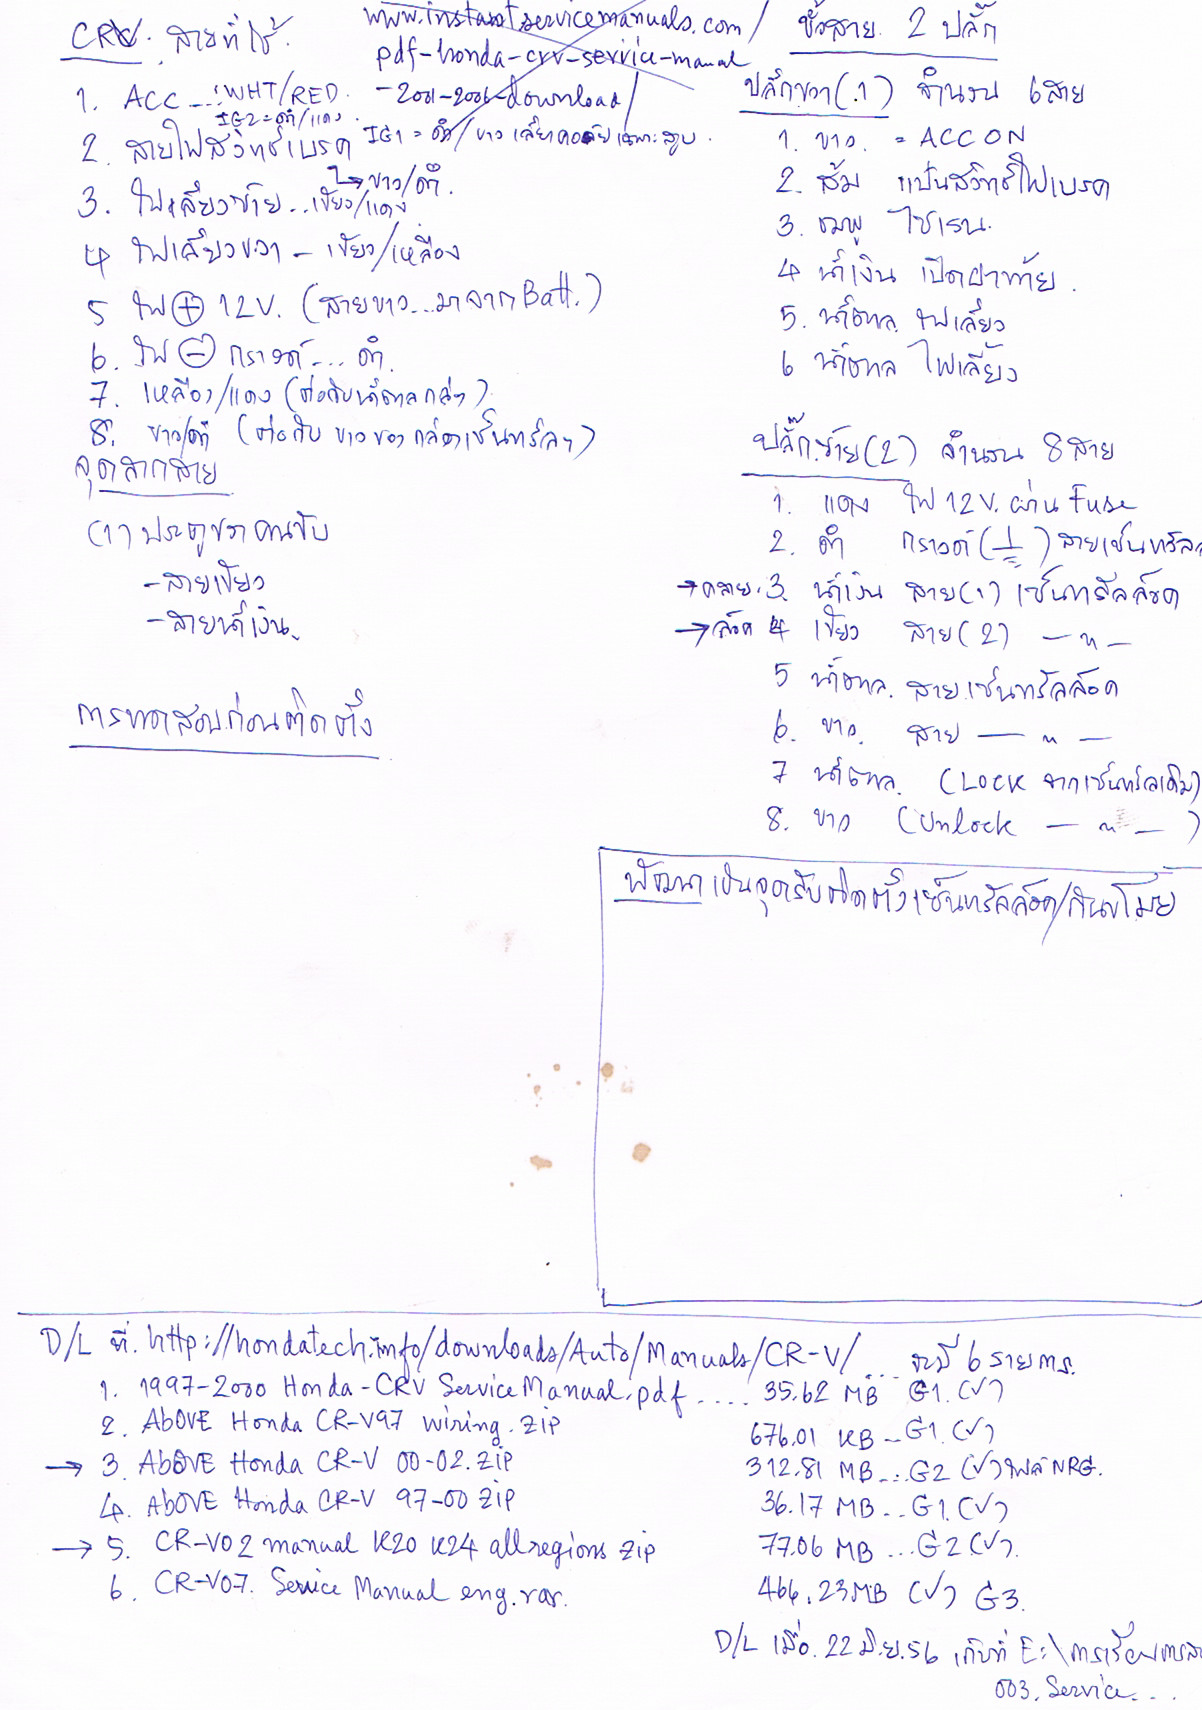 CRV. สายที่ใช้.
www.instantservicemanuals.com/
pdf-honda-crv-service-manual
-2001-2006-download/
1. ACC ...: WHT/RED.
IG2 = ดำ/แดง.
IG1 = ดำ/ขาว
2. สายไฟสวิทซ์เบรค
→ขาว/ดำ.
3. ไฟเลี้ยวซ้าย...เขียว/แดง
4 ไฟเลี้ยวขวา - เขียว/เหลือง
5 ไฟ ⊕ 12V. (สายขาว...มาจาก Batt.)
6. ไฟ ⊖ กราวด์... ดำ.
7. เหลือง/แดง (ต่อกับน้ำตาลกล่อง)
8. ขาว/ดำ (ต่อกับ ขาวของกล่องเซ็นทรัลฯ)
จุดลากสาย
(1) ประตูขวาคนขับ
-สายเขียว
-สายน้ำเงิน.
การทดสอบก่อนติดตั้ง
ขั้วสาย 2 ปลั๊ก
ปลั๊กขวา(.1) จำนวน 6สาย
1. ขาว. = ACC ON
2. ส้ม แป้นสวิทซ์ไฟเบรค
3. ชมพู ไซเรน.
4 น้ำเงิน เปิดฝาท้าย.
5. น้ำตาล. ไฟเลี้ยว
6 น้ำตาล ไฟเลี้ยว
ปลั๊กซ้าย(2) จำนวน 8สาย
1. แดง ไฟ 12V. ผ่าน Fuse
2. ดำ กราวด์(⏚) สายเซ็นทรัล
→คลาย. 3. น้ำเงิน สาย(1) เซ็นทรัลล๊อค
→ล๊อค 4 เขียว สาย(2) —"—
5 น้ำตาล. สายเซ็นทรัลล๊อค
6. ขาว. สาย —"—
7 น้ำตาล. (LOCK จากเซ็นทรัลเดิม)
8. ขาว (Unlock —"—)
พัฒนาเป็นจุดรับติดตั้งเซ็นทรัลล๊อค/กันขโมย
D/L ที่. http://hondatech.info/downloads/Auto/Manuals/CR-V/.... จะมี 6 รายการ.
1. 1997-2000 Honda-CRV ServiceManual.pdf .... 35.62 MB G1.(✓)
2. AbOVE Honda CR-V97 wiring.zip 676.01 KB - G1.(✓)
→ 3. AbOVE Honda CR-V 00-02.zip 312.81 MB...G2 (✓)ไฟล์ NRG.
4. AbOVE Honda CR-V 97-00 zip 36.17 MB...G1.(✓)
→ 5. CR-V02 manual K20 K24 allregions zip 77.06 MB ...G2(✓).
6. CR-V07. Service Manual eng.rar. 466.23MB (✓) G3.
D/L เมื่อ. 22 มิ.ย.56 เก็บที่ E:\การเรียนการส
003.Service....